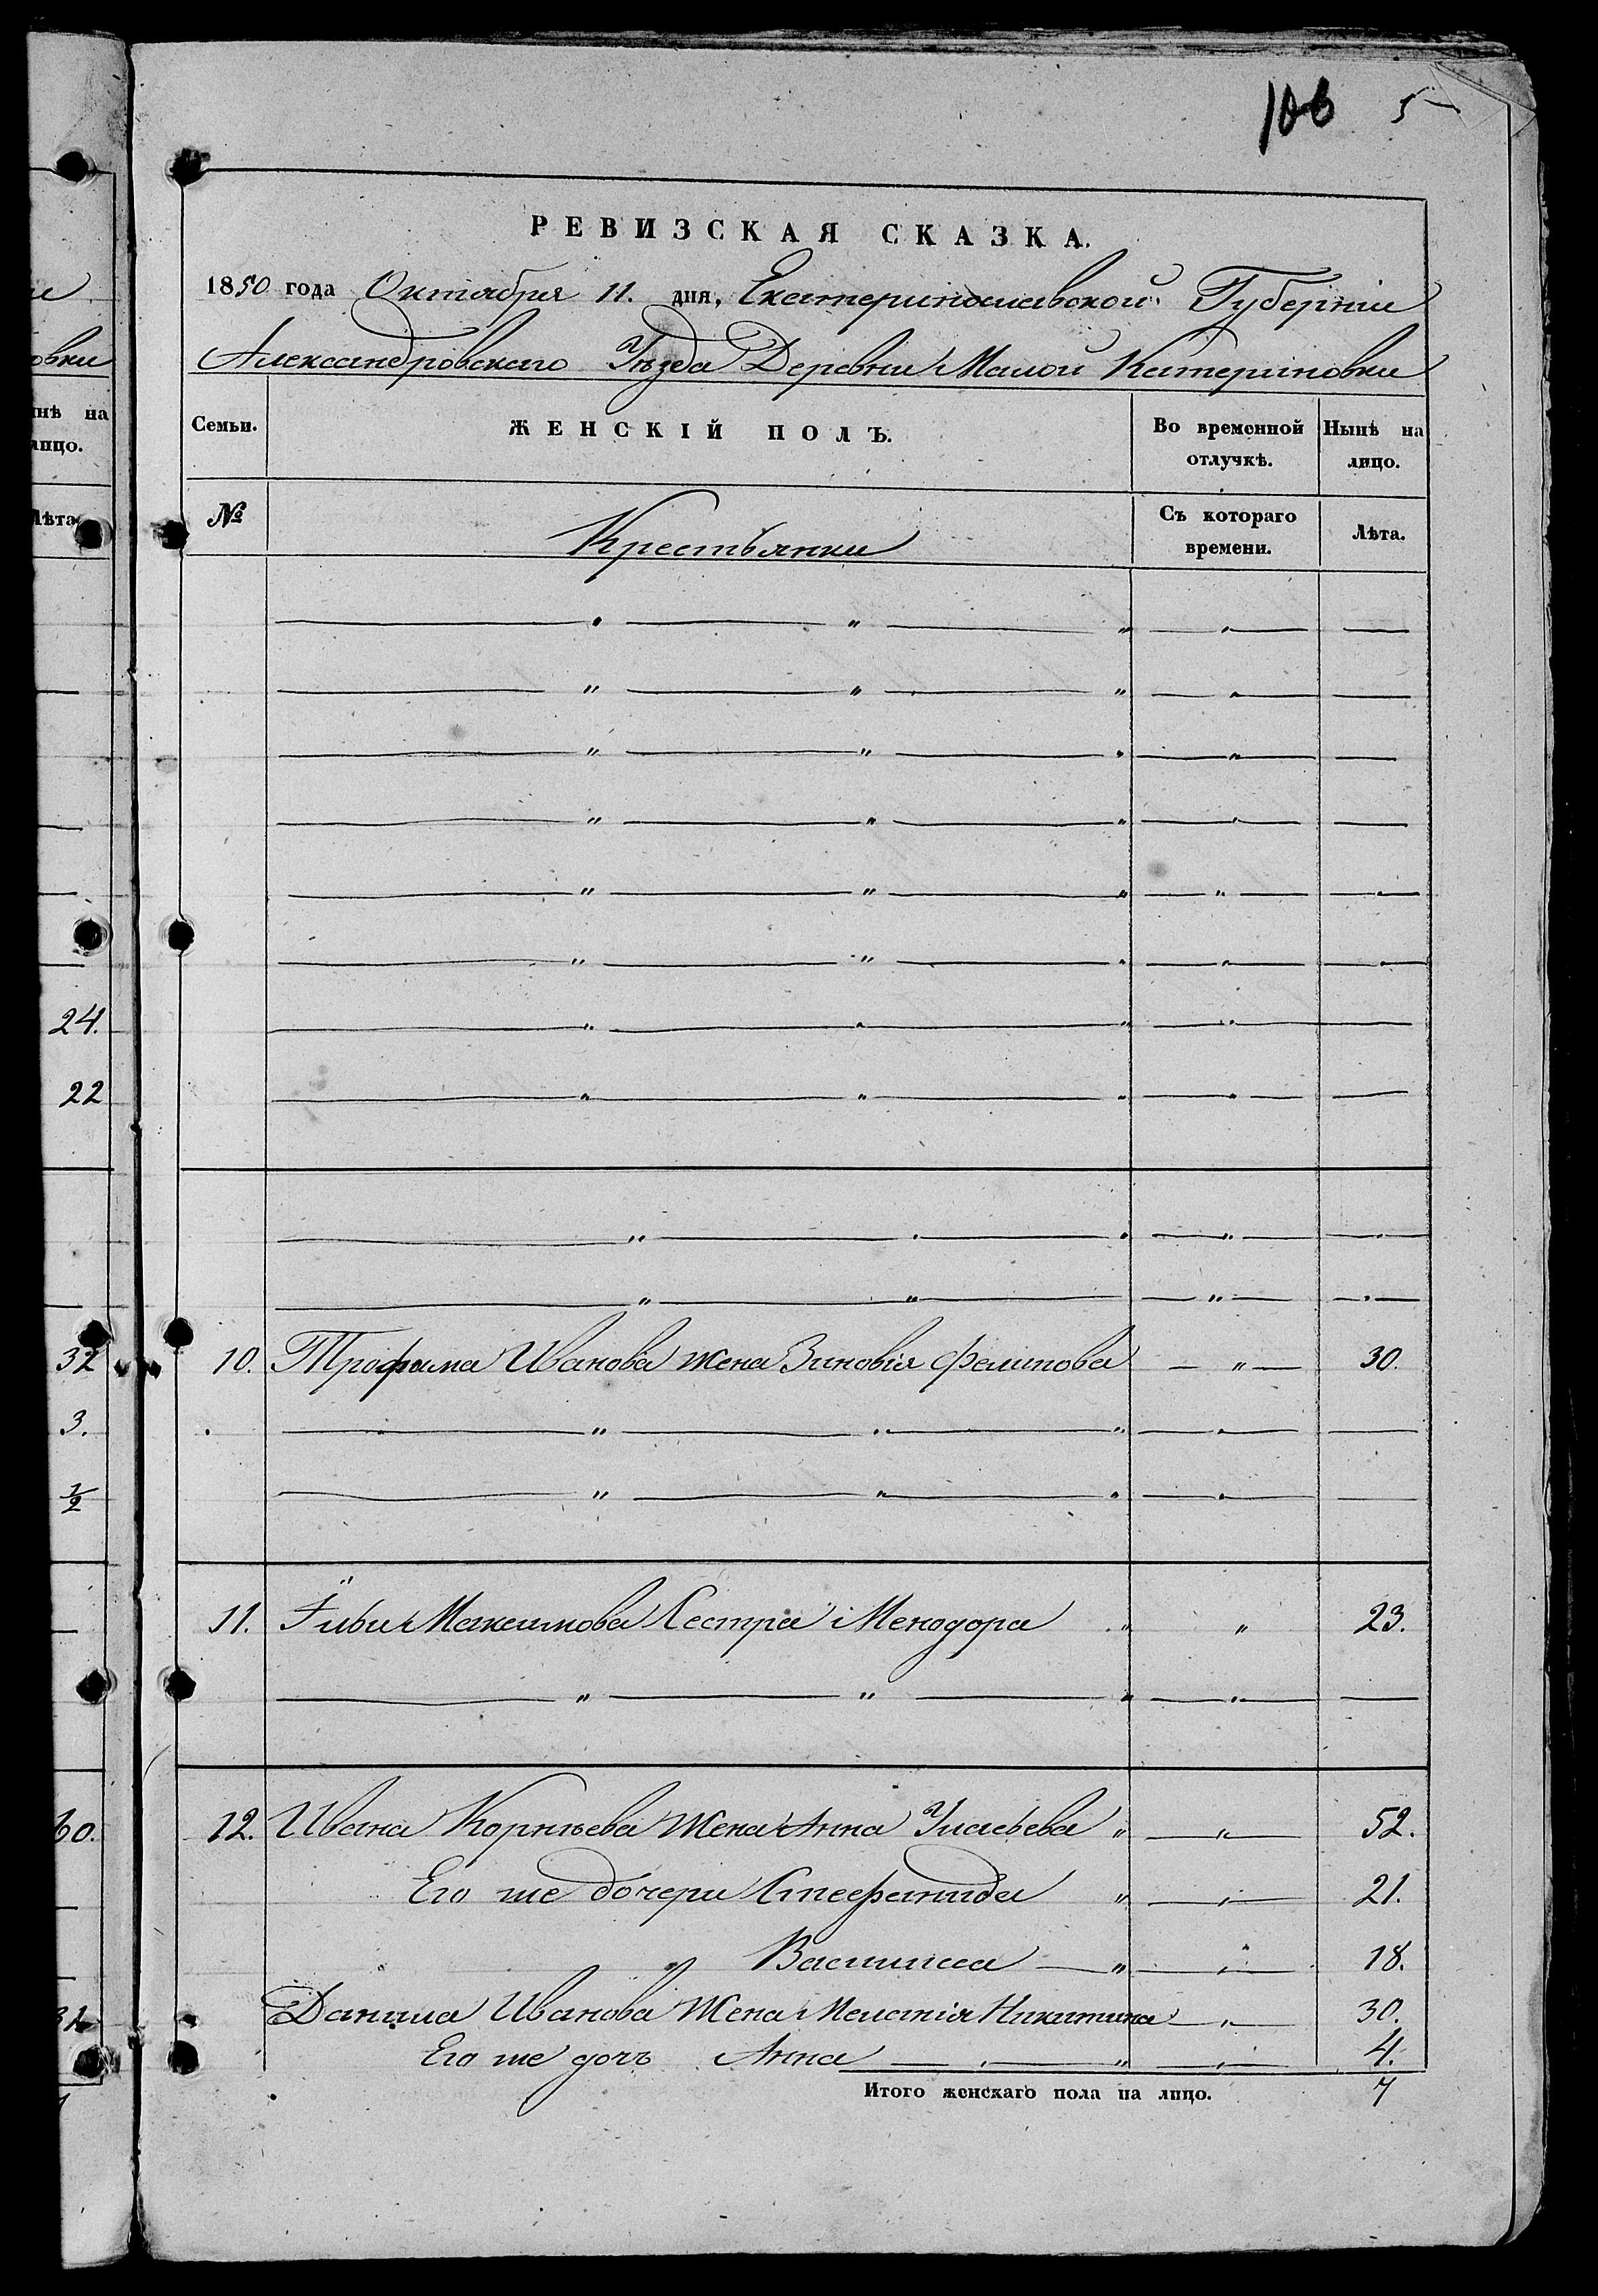 106 5
РЕВИЗСКАЯ СКАЗКА.
1850 года Октября 11. дня, Екатеринославской Губерніи
Александровскаго Уѣзда Деревни Малой Катериновки
Семьи. ЖЕНСКІЙ ПОЛЪ. Во временной отлучкѣ. Нынѣ на лицо.
№ Крестьянки Съ котораго времени. Лѣта.
10. Трофима Иванова жена Зиновія Филипова — " — 30.
11. Максимова Сестра Минодора " " 23.
12. Ивана Корнѣева Жена Анна Ильева " — " — 52.
Его же дочери Стефанида " — " — 21.
Василиса — " — " — 18.
Данила Иванова Жена Меланія Никитина — " — 30.
Его же дочь Анна — " — " — " — 4.
Итого женскаго пола на лицо. 7
овки
нѣ на
лицо.
Лѣта
24.
22
32
3.
1/2
60.